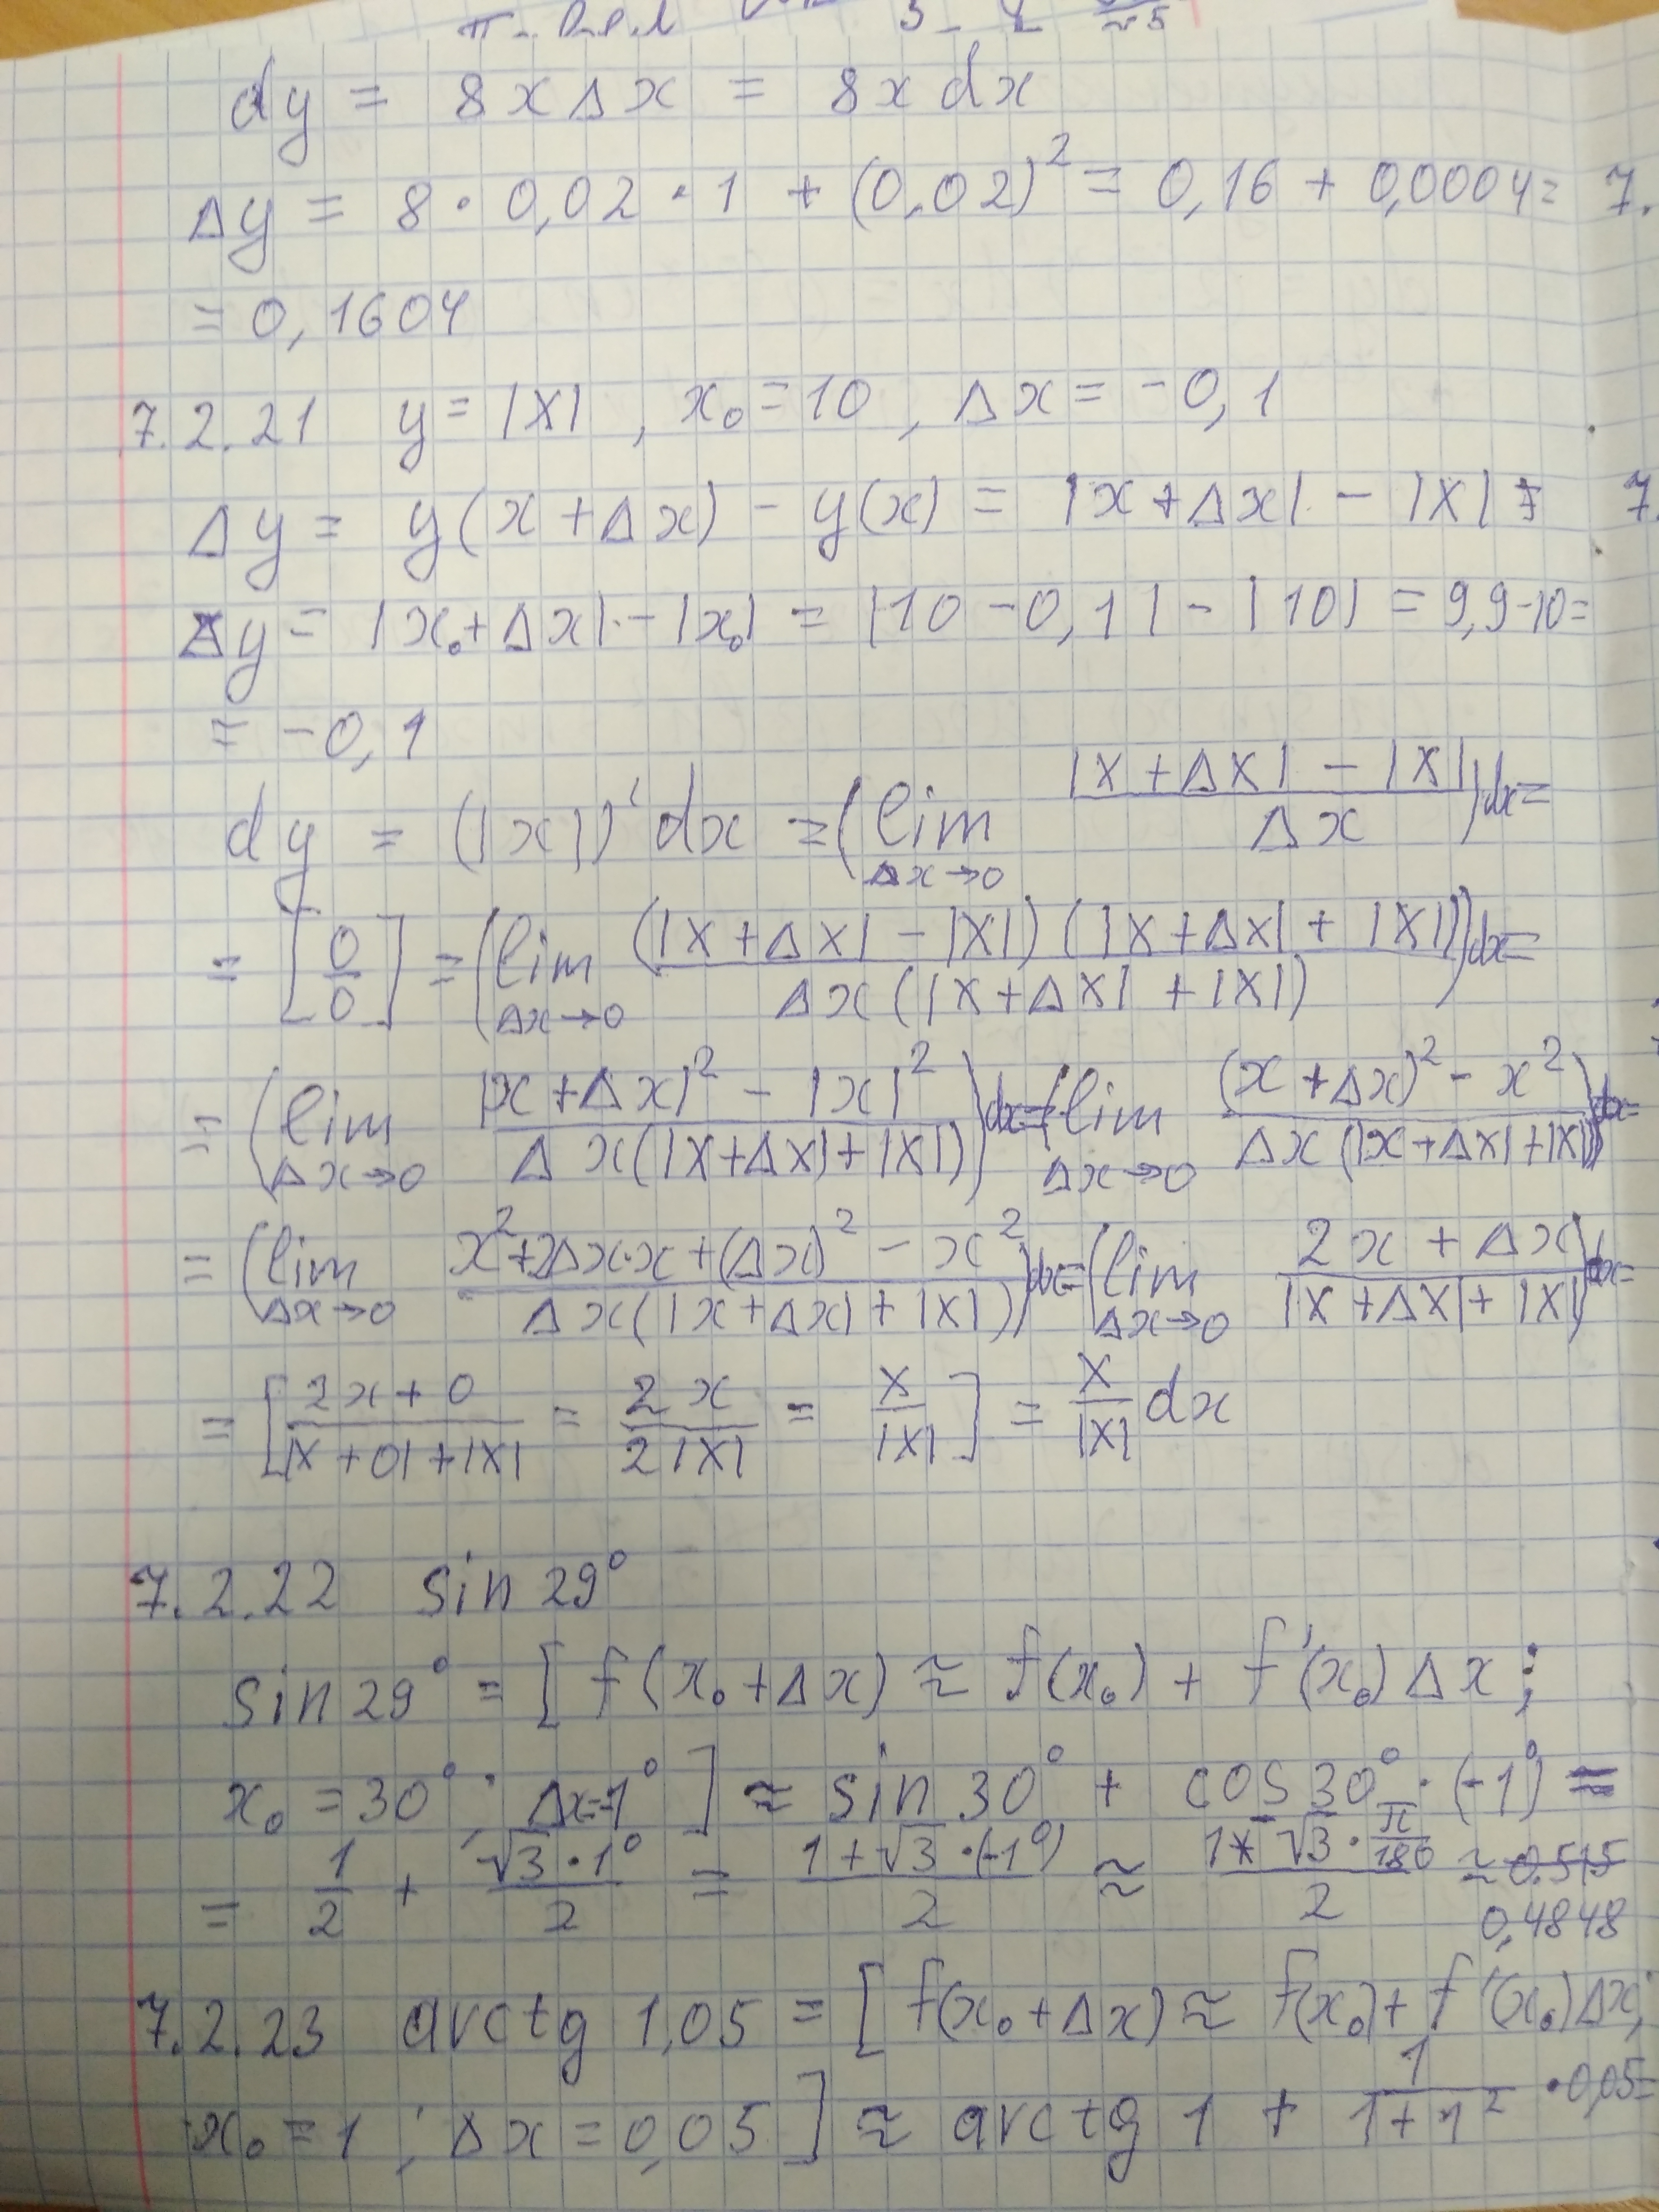 dy = 8xΔx = 8x dx
Δy = 8·0,02·1 + (0,02)² = 0,16 + 0,0004 = 7.
= 0,1604
7.2.21 y = |x| , x₀ = 10 , Δx = -0,1
Δy = y(x+Δx) - y(x) = |x+Δx| - |x| = 7.
Δy = |x₀+Δx| - |x₀| = |10-0,1| - |10| = 9,9-10=
= -0,1
dy = (|x|)' dx = (lim Δx→0 (|x+Δx| - |x|)/Δx)dx=
= [0/0] = (lim Δx→0 (|x+Δx| - |x|)(|x+Δx| + |x|)/Δx(|x+Δx| + |x|))dx=
= (lim Δx→0 (|x+Δx|² - |x|²)/Δx(|x+Δx|+|x|))dx=(lim Δx→0 ((x+Δx)² - x²)/Δx(|x+Δx|+|x|))dx=
= (lim Δx→0 (x²+2Δx·x+(Δx)² - x²)/Δx(|x+Δx|+|x|))dx=(lim Δx→0 (2x+Δx)/(|x+Δx|+|x|))dx=
= [(2x+0)/(|x+0|+|x|) = 2x/2|x| = x/|x|] = x/|x| dx
7.2.22 sin 29°
sin 29° = [f(x₀+Δx) ≈ f(x₀) + f'(x₀)Δx;
x₀ = 30°; Δx=-1°] ≈ sin 30° + cos 30°·(-1°) =
= 1/2 + √3·1°/2 = (1+√3·(-1°))/2 ≈ (1-√3·π/180)/2 ≈ 0.515
0,4848
7.2.23 arctg 1,05 = [f(x₀+Δx) ≈ f(x₀)+f'(x₀)Δx;
x₀ = 1; Δx = 0,05] ≈ arctg 1 + 1/(1+1²) ·0,05=